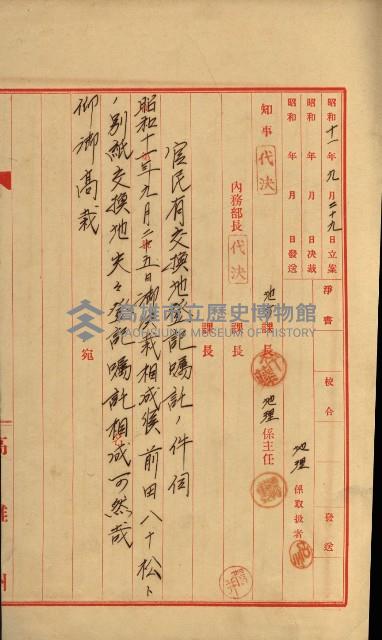 昭和十一年九月二十九日立案
昭和 年 月 日決裁
昭和 年 月 日發送
淨書
校合
發送
知事
代決
內務部長
代決
地理課長
地理係主任
地理係取扱者
課長
課長
宛
官民有交換地登記囑託ノ件伺
昭和十一年九月二十五日御決裁相成候前田八十松ト
ノ別紙交換地夫々登記囑託相成可然哉
仰御高裁
高雄州
高雄市立歷史博物館
KAOHSIUNG MUSEUM OF HISTORY